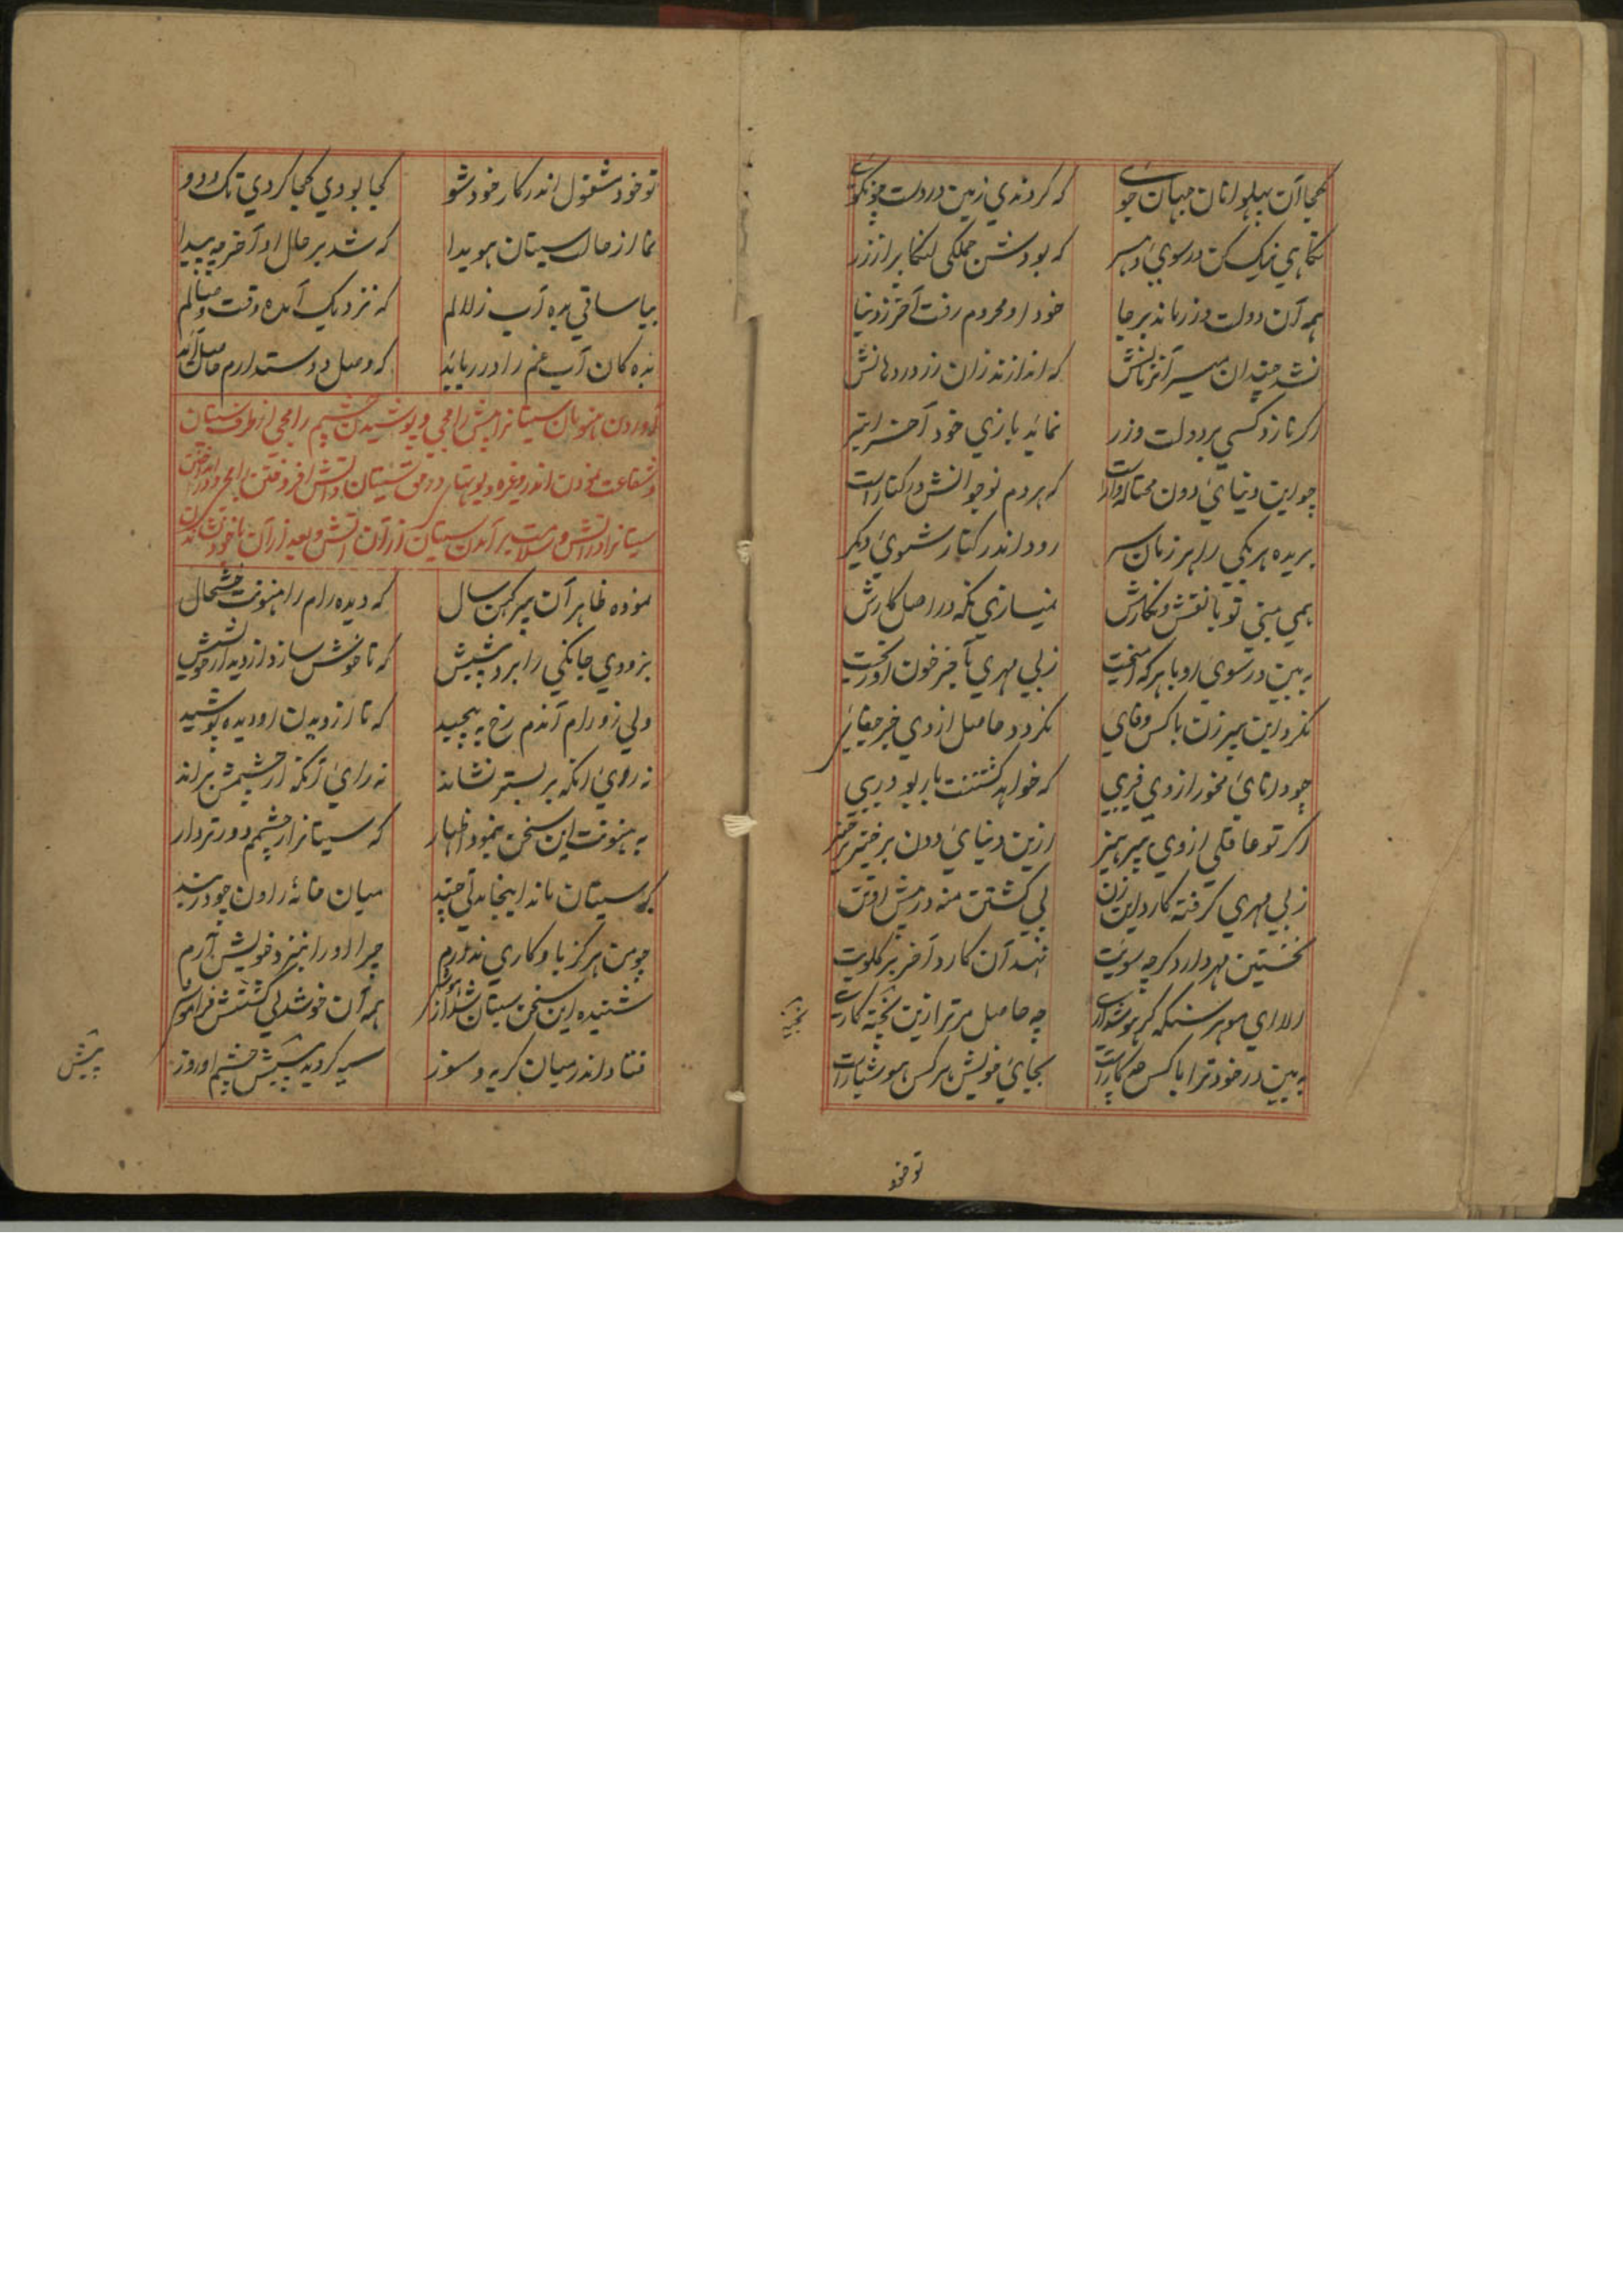 کجا آن پهلوانان جهان جوی که کردندی زمین در دست چون گوی
نگاهی نیک کن در سوی ده سر که بودش ملکی لنکا پر از زر
همه آن دولت و زر ماند بر جا خود او محروم رفت آخر ز دنیا
نشد چندان میسر آن زمانش که اندازند زان زر در دهانش
اگر نازد کسی بر دولت و زر نماید بازی خود آخر
چو این دنیای دون که هر دم نوجوانش در کنار است
بریده هر یکی را هر زمان سر رود اندر کنار شوی دیگر
همی بینی تو با نقش و نگارش نمیسازی نگه در اصل کارش
به بین در سوی او با هر که آمیخت ز بی مهری بآخر خون او ریخت
نکرد این پیر زن با کس وفای نگردد حاصل از وی جز جفای
چو دانای مخور از وی فریبی که خواهد کشتنت
اگر تو عاقلی از وی بپرهیز ازین دنیای دون برخیز برخیز
ز بی مهری گرفته کارد این زن پی کشتن منه در پیش او تن
نخستین مهر دارد گرچه سویت نهد آن کارد آخر بر گلویت
الا ای موهر سنگه گر هوشداری چه حاصل مر ترا زین پخته کاری
به بین در خود ترا با کس چه کار است بجای خویش هر کس هوشیار است
تو خود
تو خود مشغول اندر کار خود شو کجا بودی کجا کردی تک و دو
نما از حال سیتان هویدا که شد بر حال او آخر چه پیدا
بیا ساقی بده آب زلالم که نزدیک آمده وقت وصالم
بده کان آب غم را در رباید که وصل دوستدارم حاصل آید
آوردن هنونان سیتانرا پیش رامچی و پوشیدن چشم رامچی از طرف سیتان
و شفاعت نمودن اندر و غیره دیوتها در حق سیتان و آتش افروختن رامچی و انداختن
سیتانرا در آتش و سلامت برآمدن سیتان از آن آتش و بعد از آن با خود
نموده ظاهر آن پیر کهن سال که دیده رام را هنونت خوشحال
بزودی جانکی را برد پیشش که تا خوش سازد از دیدار خویشش
ولی زو رام آندم رخ به پیچید که تا از دیدن او دیده پوشید
نه روی آنکه بر بستر نشاند نه رای آنکه از چشمش براند
به هنونت این سخن بنمود اظهار که سیتانرا ز چشمم دورتر دار
که سیتان ماند اینجا مدتی چند میان خانهٔ راون چو در بند
چو من هرگز باو کاری ندارم چرا او را بنزد خویش آرم
شنیده این سخن سیتان شد از هوش همه آن خوشدلی گشتش فراموش
فتاد اندر میان گریه و سوز سیه گردید پیش چشم او روز
پیش